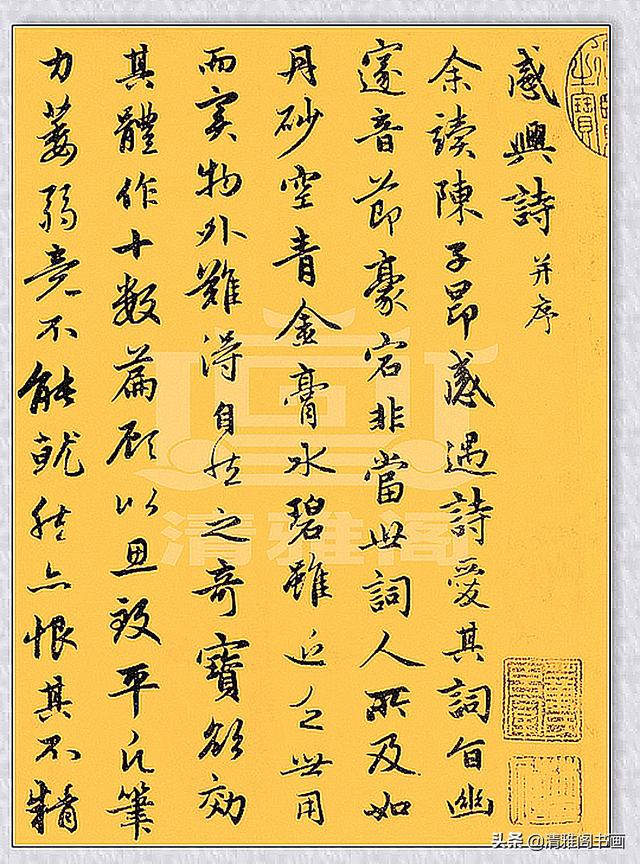 感興詩并序
余讀陳子昂感遇詩愛其詞旨幽
邃音節豪宕非當世詞人所及如
丹砂空青金膏水碧雖近乏世用
而實物外難得自然之奇寶欲効
其體作十數篇顧以思致平凡筆
力萎弱竟不能就然亦恨其不精
清雅阁
头条 @清雅阁书画